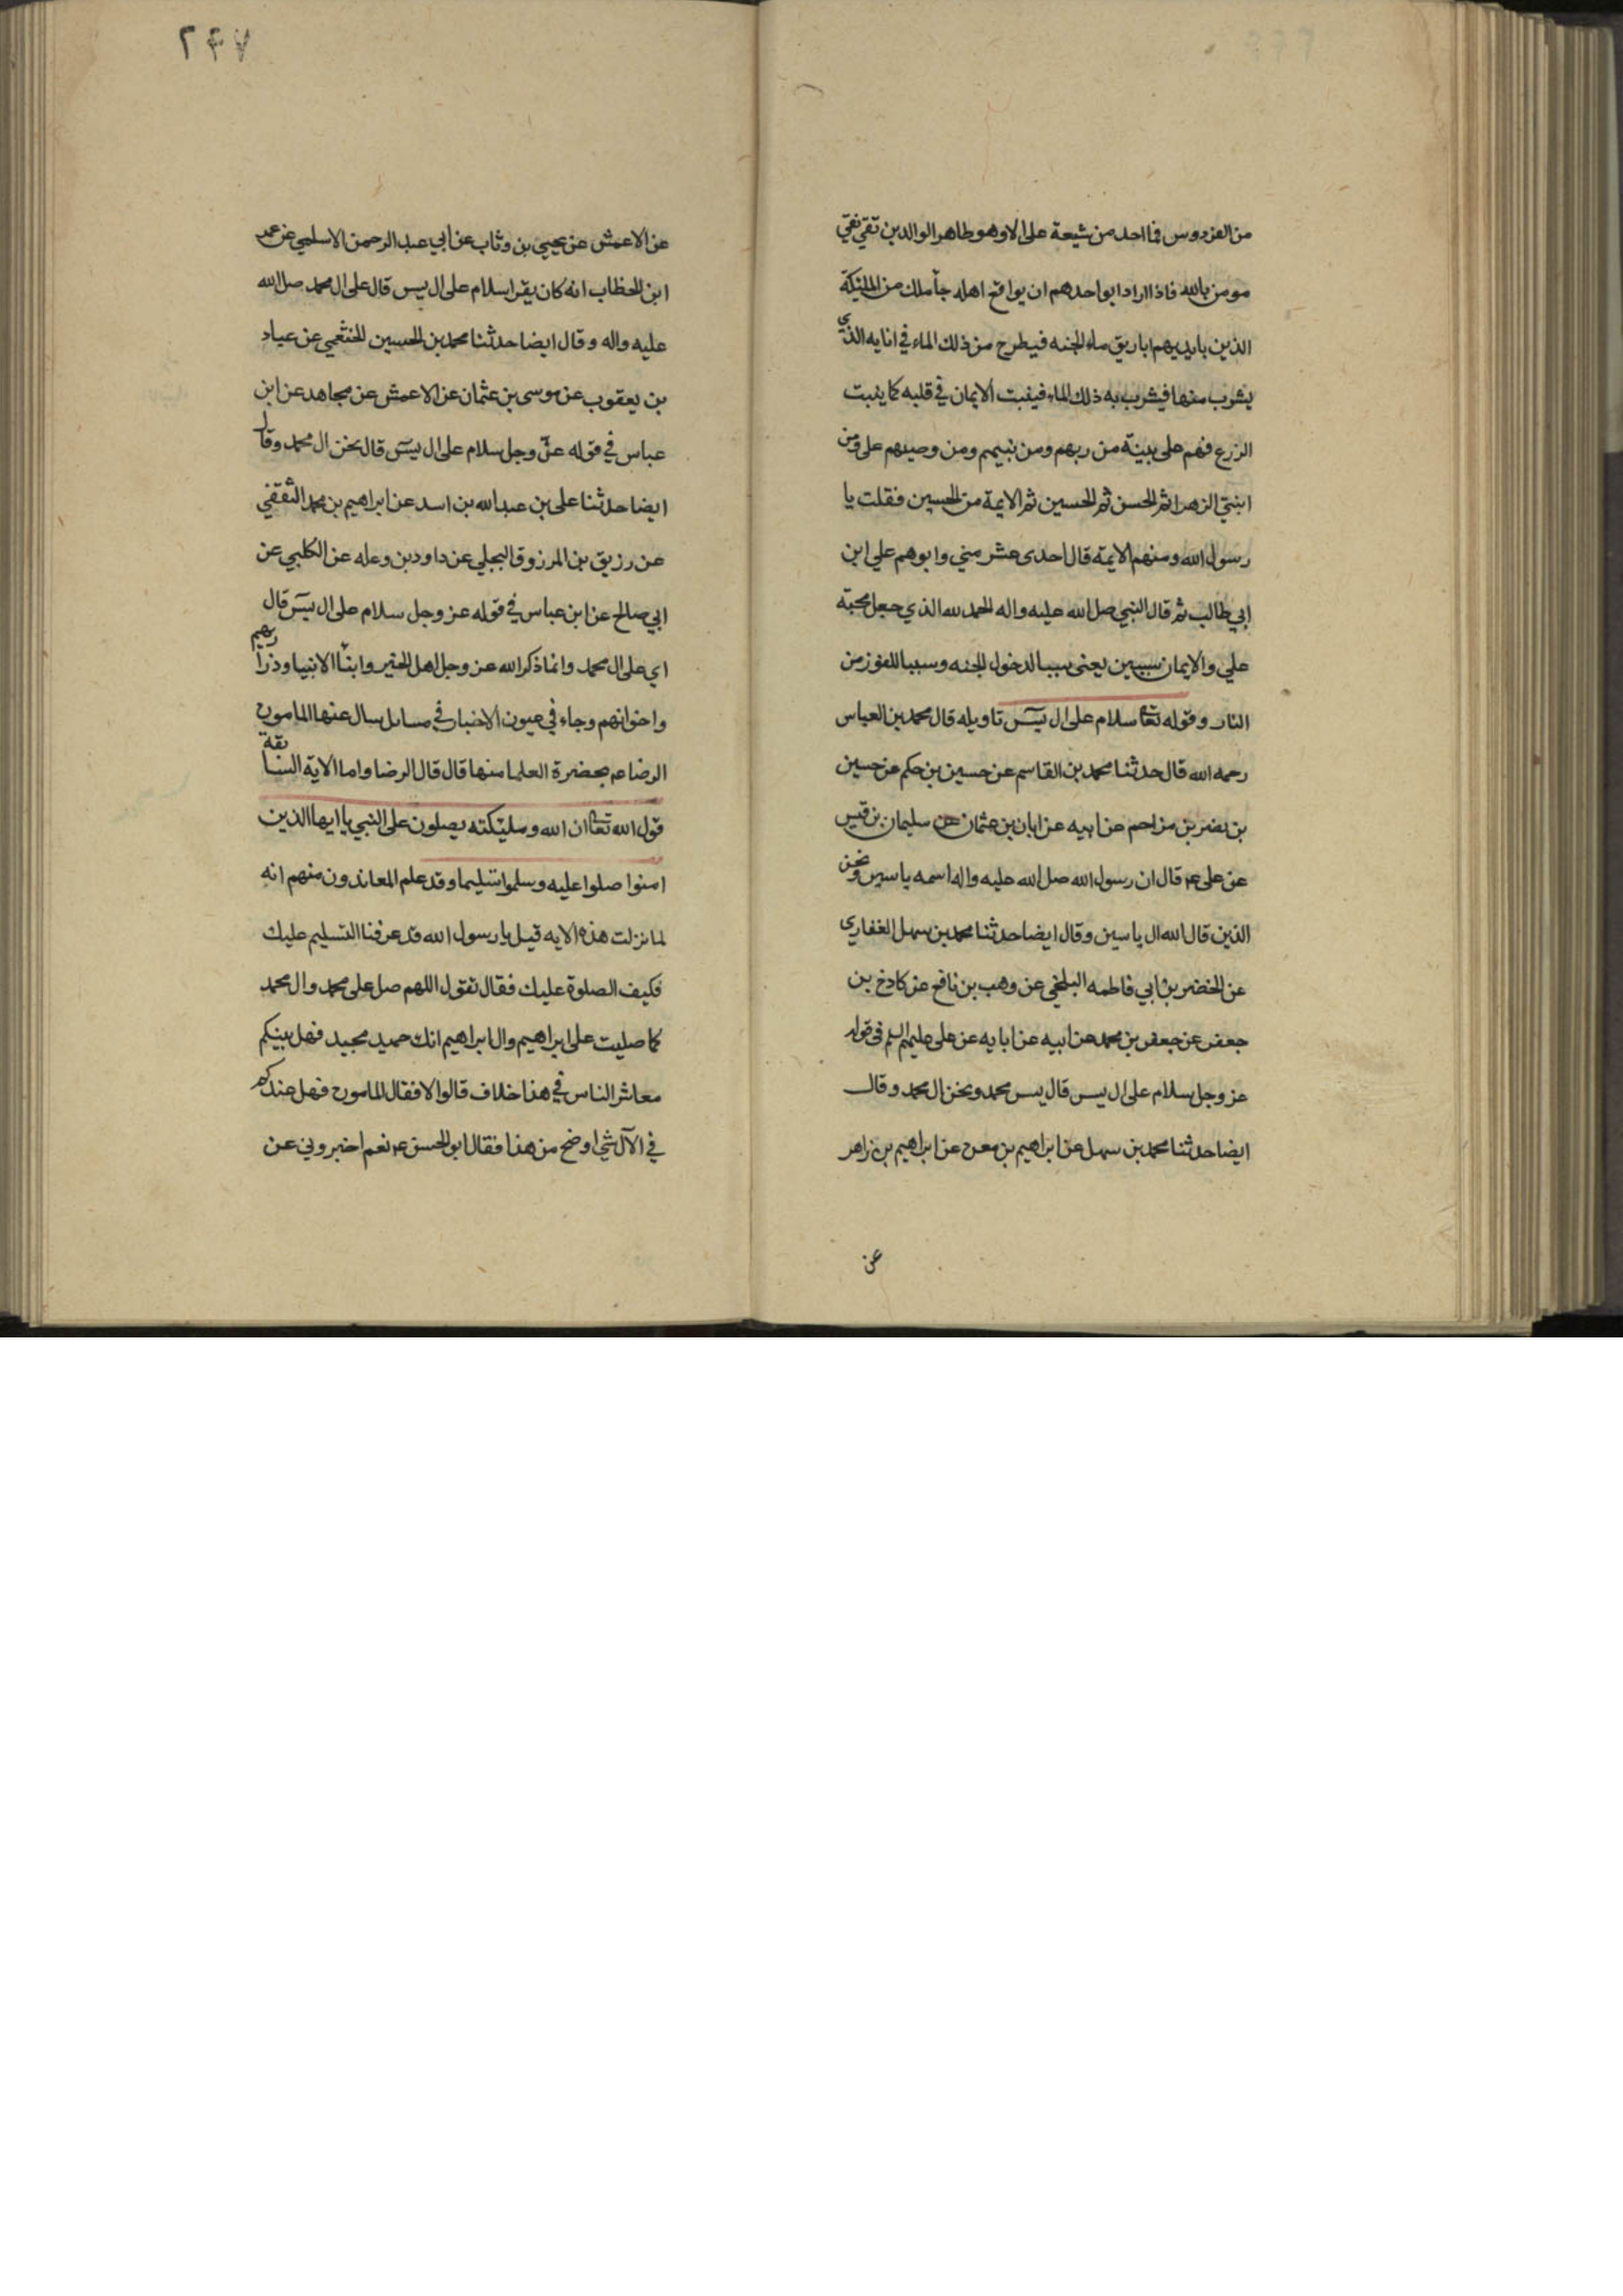 من الفردوس فما احد من شيعة على الا وهو طاهر الوالدين تقي نقي
مومن بالله فاذا اراد ابو احدهم ان يواقع اهله جأ ملك من الملئكة
الذين بايديهم اباريق ماء الجنه فيطرح من ذلك الماء في انايه الذي
يشرب منها فيشرب به ذلك الماء فينبت الايمان في قلبه كما ينبت
الزرع فهم على بينة من ربهم ومن نبيهم ومن وصيهم على ومن
ابنتي الزهرا ثم الحسن ثم الحسين ثم الايمة من الحسين فقلت يا
رسول الله ومنهم الايمة قال احدى عشر مني وابوهم علي ابن
ابي طالب ثم قال النبي صل الله عليه واله الحمد لله الذي جعل محبة
علي والايمان سببين يعنى سببا لدخول الجنه وسببا للفوز من
النار وقوله تعا سلام على ال يس تاويله قال محمد بن العباس
رحمه الله قال حدثنا محمد بن القاسم عن حسين بن حكم عن حسين
بن نصر بن مزاحم عن ابيه عن ابان بن عثمان عن سليمان بن قيس
عن على ع قال ان رسول الله صل الله عليه واله اسمه ياسين ونحن
الذين قال الله ال ياسين وقال ايضا حدثنا محمد بن سهل الغفاري
عن الخضر بن ابي فاطمه البلخي عن وهب بن نافع عن كادح بن
جعفر عن جعفر بن محمد عن ابيه عن ابايه عن على عليهم السلم فى قوله
عز وجل سلام على ال يس قال يس محمد ونحن ال محمد وقال
ايضا حدثنا محمد بن سهل عن ابراهيم بن معن عن ابراهيم بن زاهر
عن
٢٤٧
عن الاعمش عن يحيى بن وثاب عن ابي عبد الرحمن الاسلمي عن عمر
ابن الخطاب انه كان يقرا سلام على ال يس قال على ال محمد صل الله
عليه واله وقال ايضا حدثنا محمد بن الحسين الخثعمي عن عباد
بن يعقوب عن موسى بن عثمان عن الاعمش عن مجاهد عن ابن
عباس في قوله عز وجل سلام على ال يس قال نحن ال محمد وقال
ايضا حدثنا على بن عبد الله بن اسد عن ابراهيم بن محمد الثقفي
عن رزيق بن المرزوق البجلي عن داود بن وعله عن الكلبي عن
ابي صالح عن ابن عباس في قوله عز وجل سلام على ال يس قال
اي على ال محمد وانما ذكر الله عز وجل اهل الخير وابنأ الانبيا وذراريهم
واخوانهم وجاء في عيون الاخبار في مسايل سال عنها المامون
الرضا ع بحضرة العلما منها قال قال الرضا واما الاية السابقة
قول الله تعا ان الله وملئكته يصلون على النبي يا ايها الذين
امنوا صلوا عليه وسلموا تسليما وقد علم المعاندون منهم انه
لما نزلت هذه الايه قيل يا رسول الله قد عرفنا التسليم عليك
فكيف الصلوة عليك فقال تقول اللهم صل على محمد وال محمد
كما صليت على ابراهيم وال ابراهيم انك حميد مجيد فهل بينكم
معاشر الناس في هذا خلاف قالوا لا فقال المامون فهل عندكم
في الآل شي اوضح من هذا فقال ابو الحسن ع نعم اخبروني عن